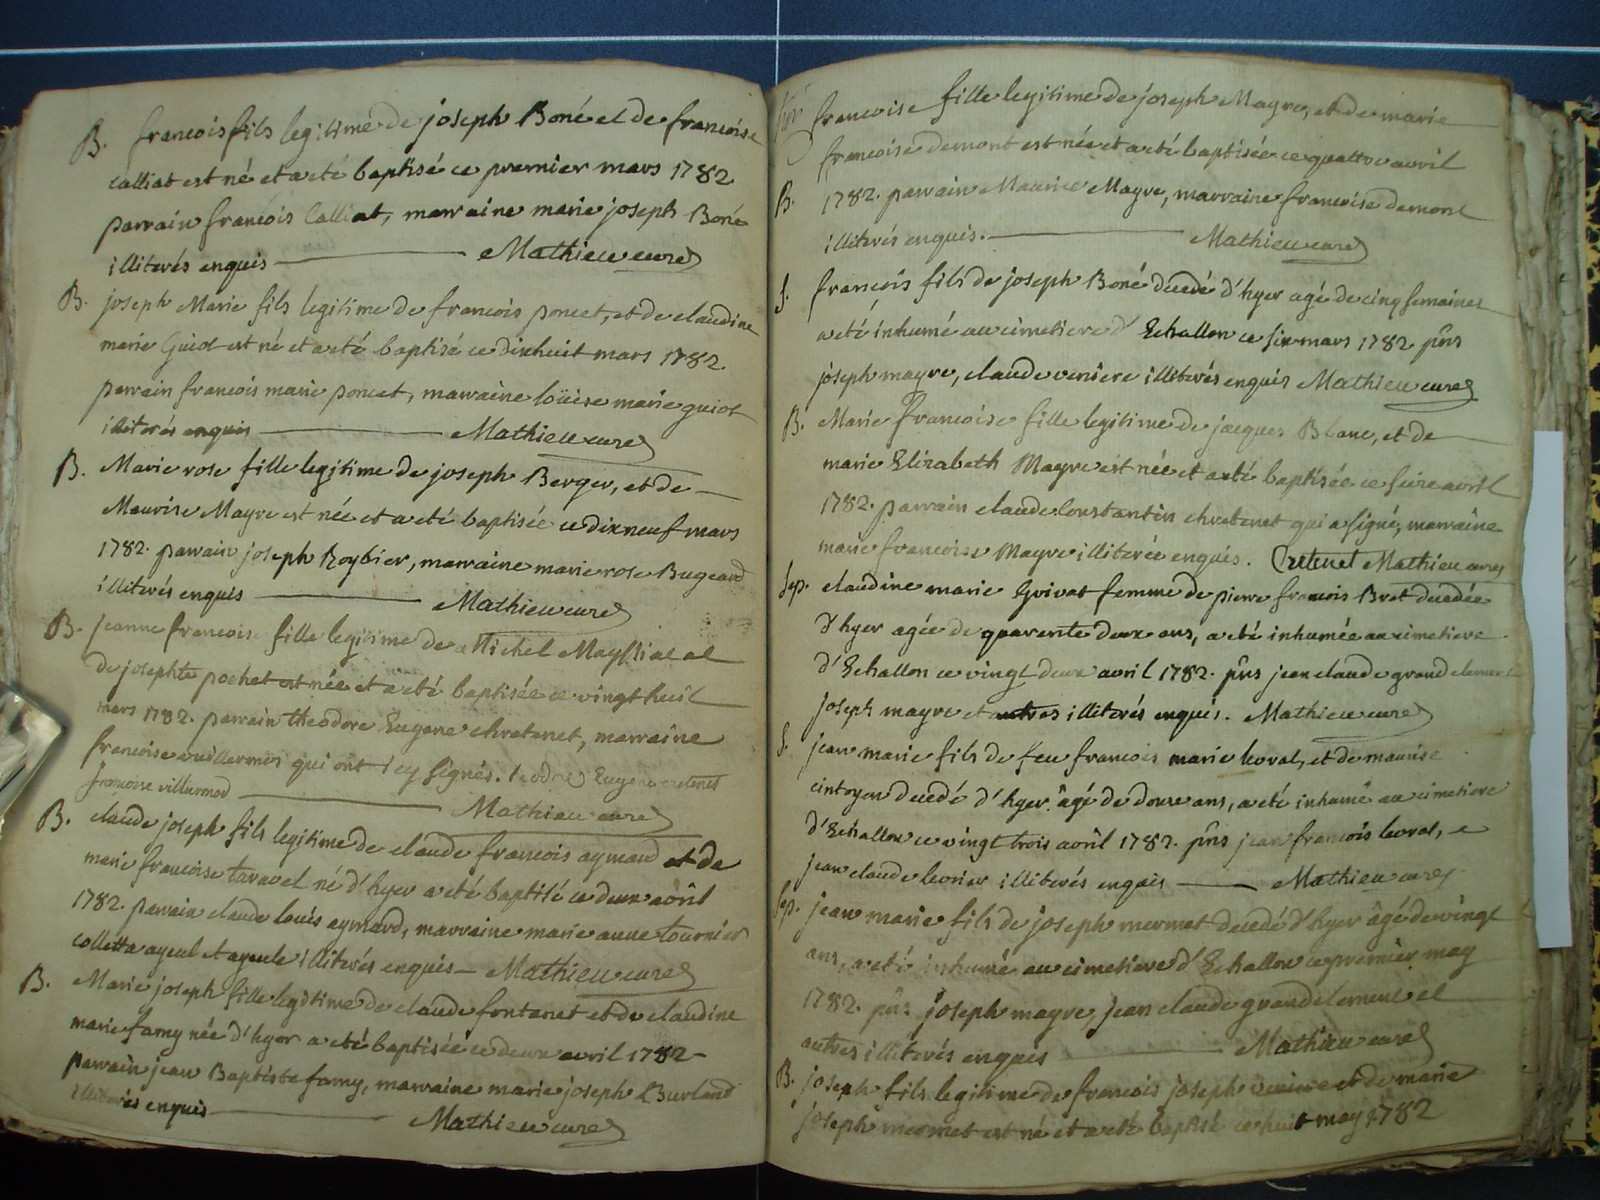 B. francois fils legitime de joseph Boné et de francoise
Calliat est né et a eté baptisé ce premier mars 1782
parrain francois Calliat, marraine marie joseph Boné
illiterés enquis Mathieu curé
B. joseph Marie fils legitime de francois poncet, et de claudine
marie Guiot est né et a eté baptisé ce dixhuit mars 1782.
parrain francois marie poncet, marraine loüise marie guiot
illiterés enquis Mathieu curé
B. Marie rose fille legitime de joseph Berger, et de
Maurise Mayre est née et a eté baptisée ce dixneuf mars
1782. parrain joseph Roybier, marraine marie rose Bugeard
illiterés enquis Mathieu curé
B. jeanne francoise fille legitime de Michel et
de josephte pochet est née et a eté baptisée ce vingt huit
mars 1782. parrain theodore Eugene chretenet, marraine
francoise vuillermos qui ont icy signés. Eugene cretenet
francoise villermod Mathieu curé
B. claude joseph fils legitime de claude francois aymard et de
marie francoise taravel né d'hyer a eté baptisé ce deux avril
1782. parrain claude louis aymard, marraine marie anne tournier
colletta ayeul et ayeule illiterés enquis Mathieu curé
B. Marie joseph fille legitime de claude fontanet et de claudine
marie famy née d'hyer a eté baptisée ce deux avril 1782
parrain jean Baptiste famy, marraine marie joseph Burland
illiterés enquis Mathieu curé
francoise fille legitime de joseph Mayre, et de marie
francoise demont est née et a eté baptisée ce quattre avril
B. 1782. parrain Maurice Mayre, marraine francoise demont
illiterés enquis. Mathieu curé
S. francois fils de joseph Boné decedé d'hyer agé de cinq semaines
a eté inhumé au cimetiere d'Echallon ce six mars 1782 pñs
joseph mayre, claude veniere illiterés enquis Mathieu curé
B. Marie francoise fille legitime de jacques Blanc, et de
marie Elizabeth Mayre est née et a eté baptisée ce seize avril
1782. parrain claude Constantin chretenet qui a signé, marraine
marie francoise Mayre illiterée enquis. Cretenet Mathieu curé
Sep. claudine marie Grivat femme de pierre francois Bret decedée
d'hyer agée de quarente deux ans, a eté inhumée au cimetiere
d'Echallon ce vingt deux avril 1782. pñs jean claude grand clement
joseph mayre et autres illiterés enquis. Mathieu curé
S. jean marie fils de feu francois marie leoral, et de maurise
cintoyen decedé d'hyer. âgé de douze ans, a eté inhumé au cimetiere
d'Echallon ce vingt trois avril 1782. pñs jean francois leoral, e
jean claude illiterés enquis Mathieu curé
Sep. jean marie fils de joseph mermet decedé d'hyer âgé de vingt
ans, a eté inhumé au cimetiere d'Echallon ce premier may
1782. pñs joseph mayre, jean claude grandclement et
autres illiterés enquis Mathieu curé
B. joseph fils legitime de francois joseph et de marie
joseph mermet est né et a eté baptisé ce huit may 1782